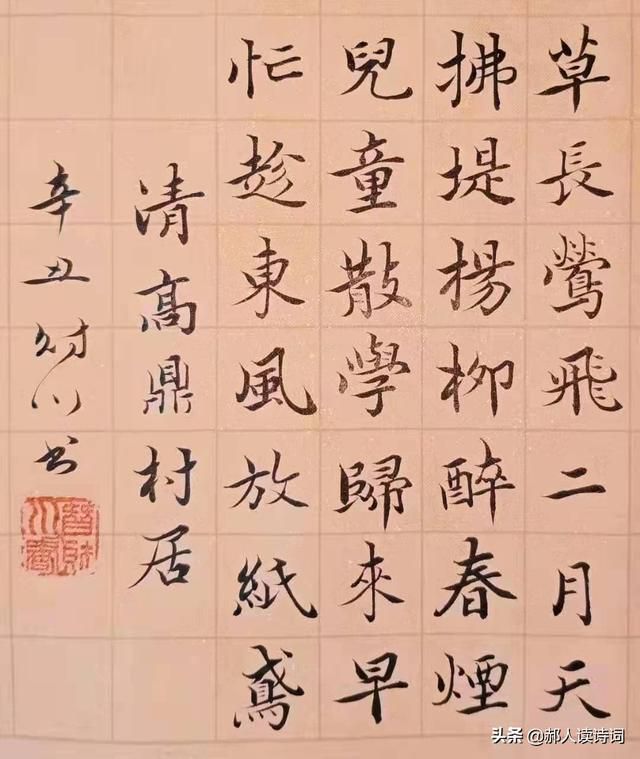 草長鶯飛二月天
拂堤楊柳醉春煙
兒童散學歸來早
忙趁東風放紙鳶
清高鼎村居
辛丑財川书
頭条@郝人读诗词